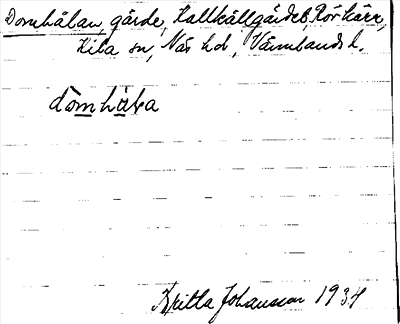 Domhålan, gärde, Kallkällgärdet, Rörkärr,
Kila sn, Näs hd, Värmlands l.
dömhåla
Britta Johansson 1934